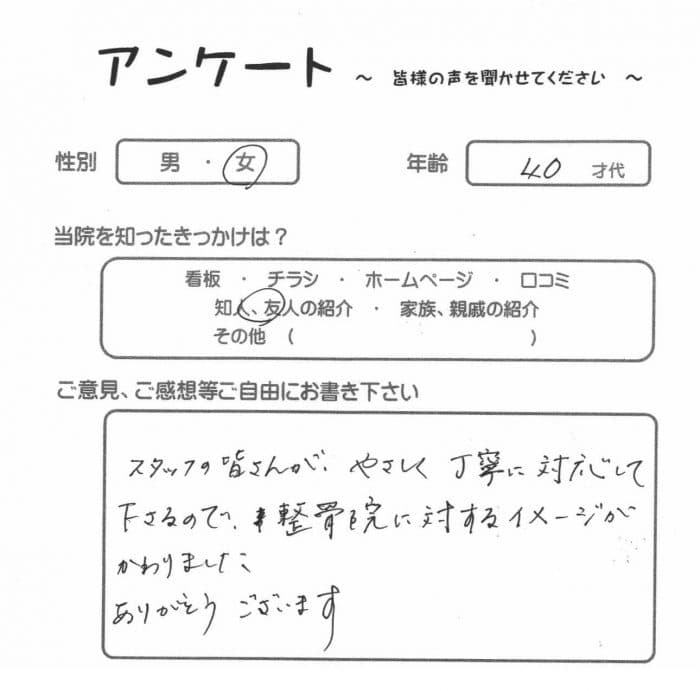 アンケート ～ 皆様の声を聞かせてください ～
性別 男 ・ 女 年齢 40 才代
当院を知ったきっかけは？
看板 ・ チラシ ・ ホームページ ・ 口コミ
知人、友人の紹介 ・ 家族、親戚の紹介
その他 （ ）
ご意見、ご感想等ご自由にお書き下さい
スタッフの皆さんが、やさしく丁寧に対応して
下さるので、整骨院に対するイメージが
かわりました
ありがとうございます